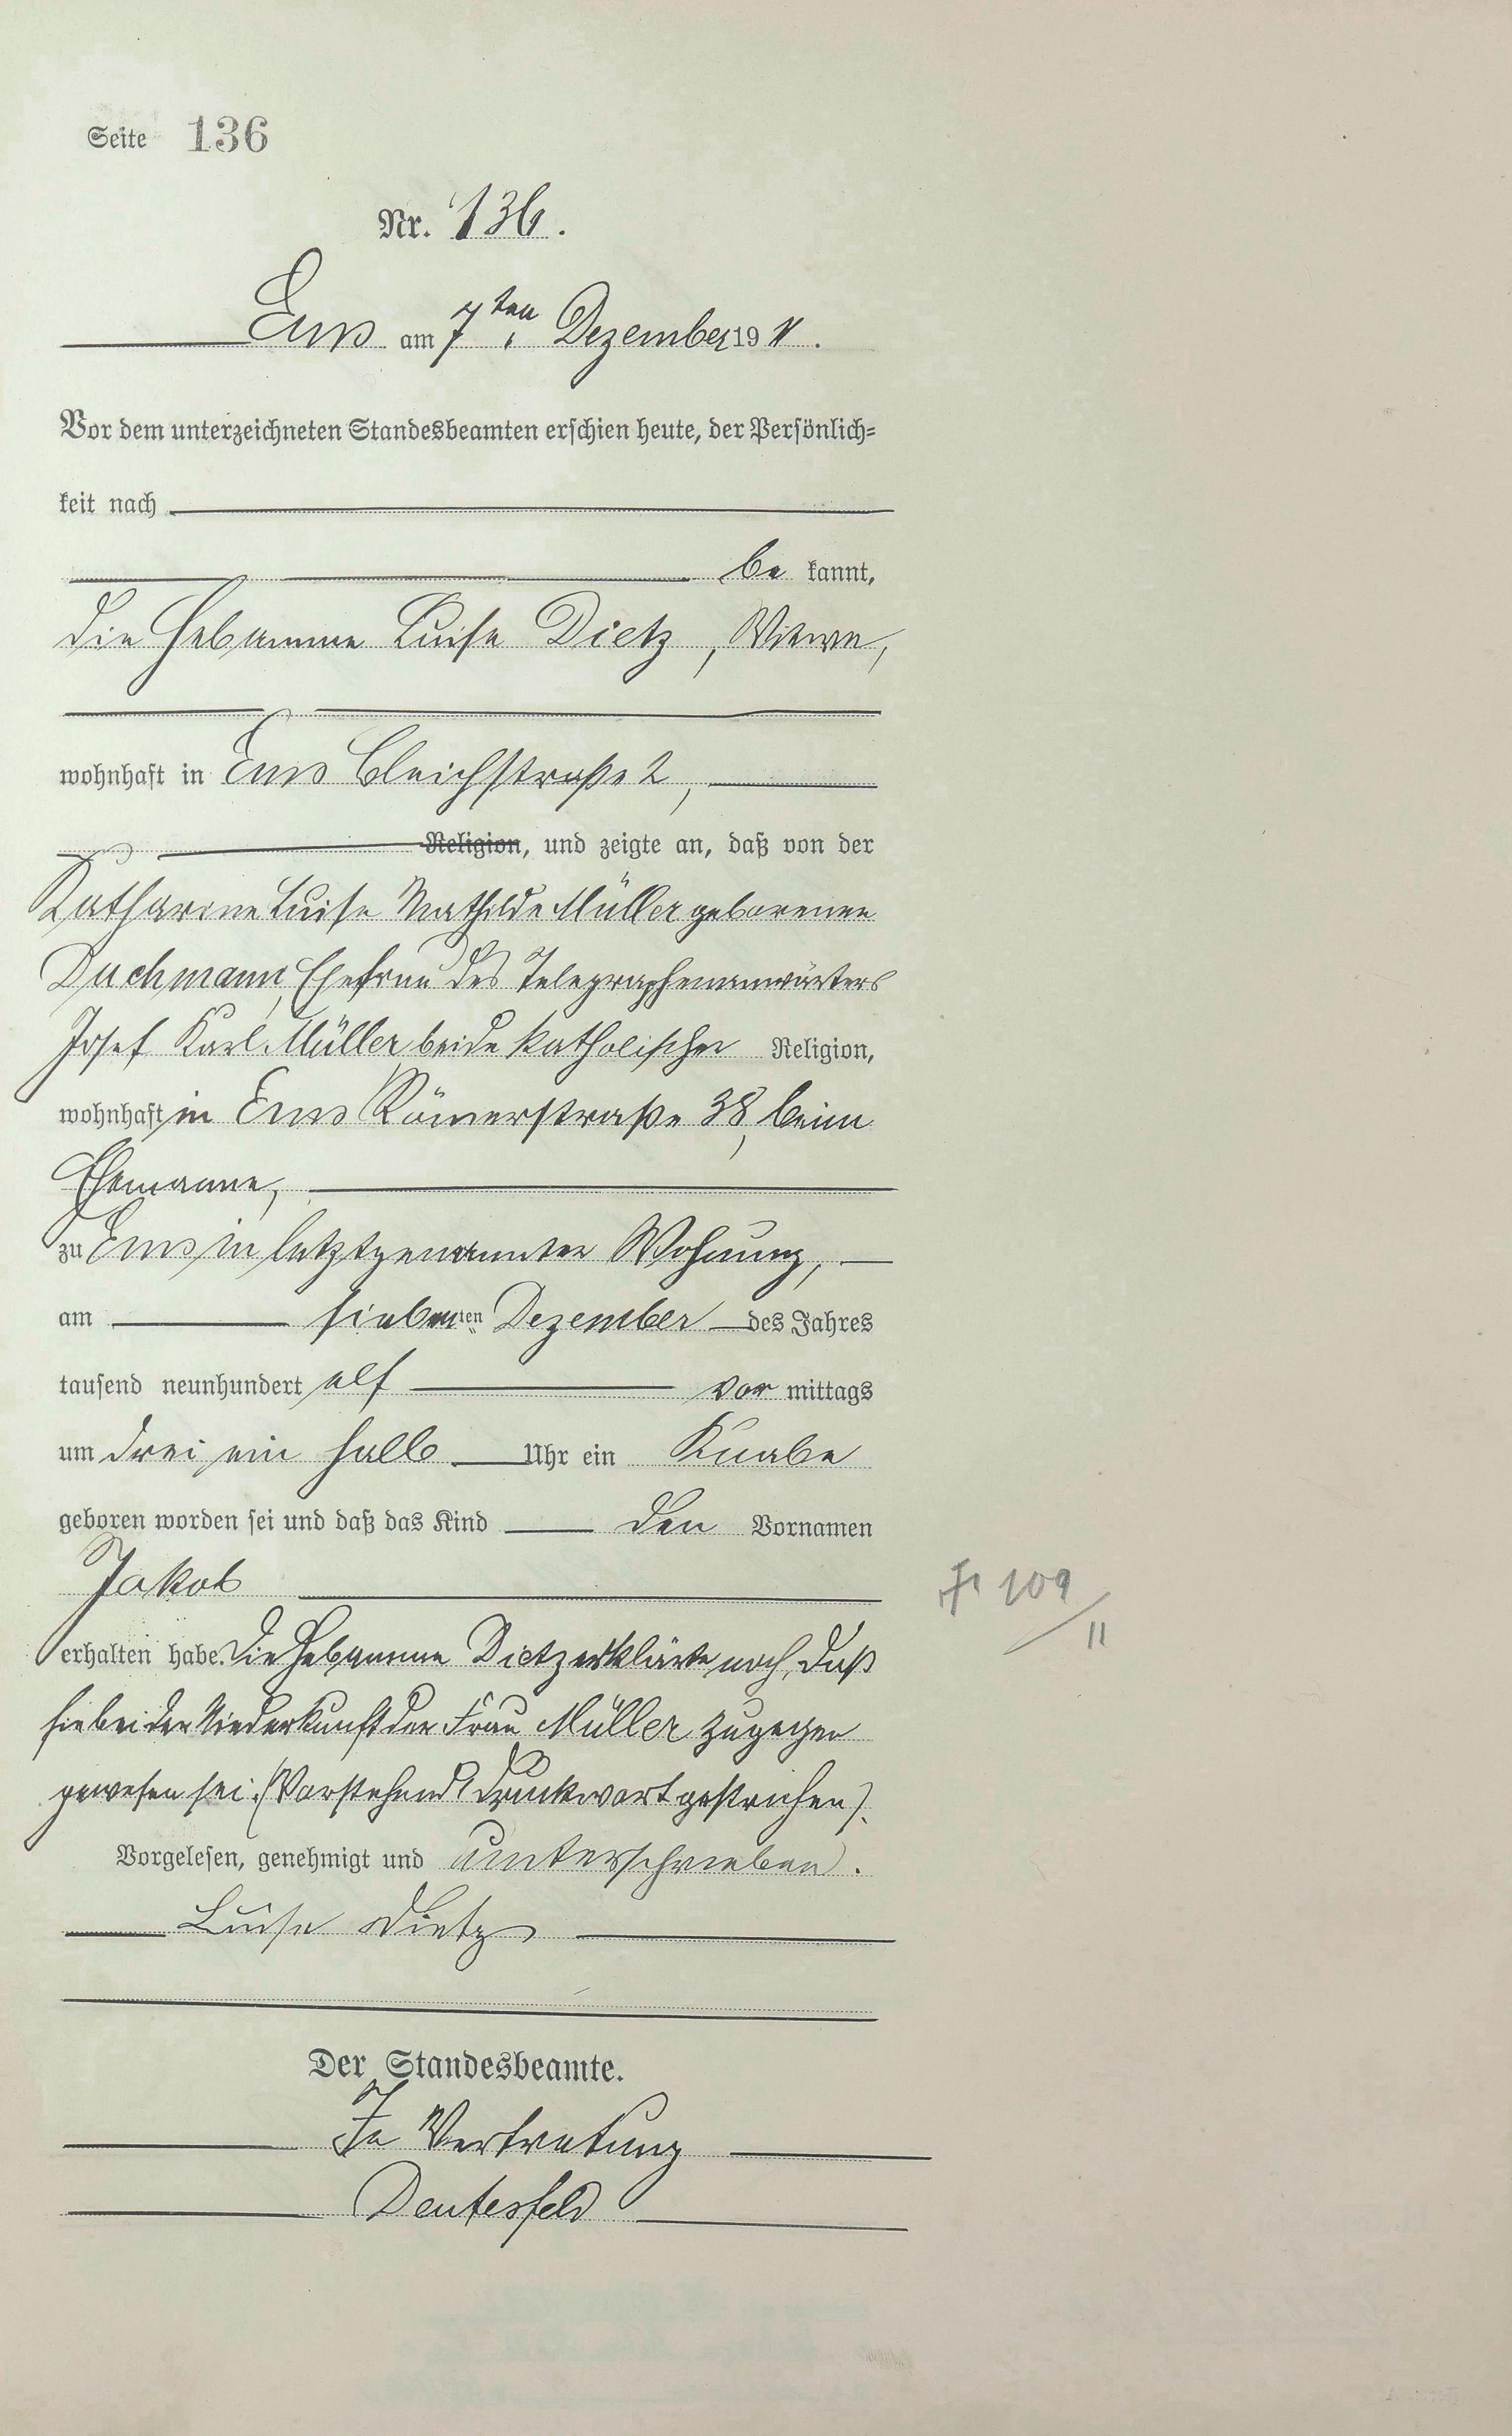 Seite 136
Nr. 136.
Ems am 7ten Dezember 1911.
Vor dem unterzeichneten Standesbeamten erschien heute, der Persönlich=
keit nach
be kannt,
die Hebamme Luise Dietz, Witwe,
wohnhaft in Ems Bleichstraße 2,
Religion, und zeigte an, daß von der
Katharine Luise Mathilde Müller geborenen
Duchmann, Ehefrau des Telegraphenanwärters
Josef Karl Müller beide katholischer Religion,
wohnhaft in Ems Römerstraße 38, beim
Ehemanne,
zu Ems in letztgenannter Wohnung,
am siebenten Dezember des Jahres
tausend neunhundert elf vor mittags
um drei ein halb Uhr ein Knabe
geboren worden sei und daß das Kind den Vornamen
Jakob
erhalten habe. Die Hebamme Dietz erklärte noch, daß
sie bei der Niederkunft der Frau Müller zugegen
gewesen sei. (Vorstehend 1 Druckwort gestrichen).
Vorgelesen, genehmigt und unterschrieben.
Luise Dietz
Der Standesbeamte.
In Vertretung
Deutesfeld
109
/11